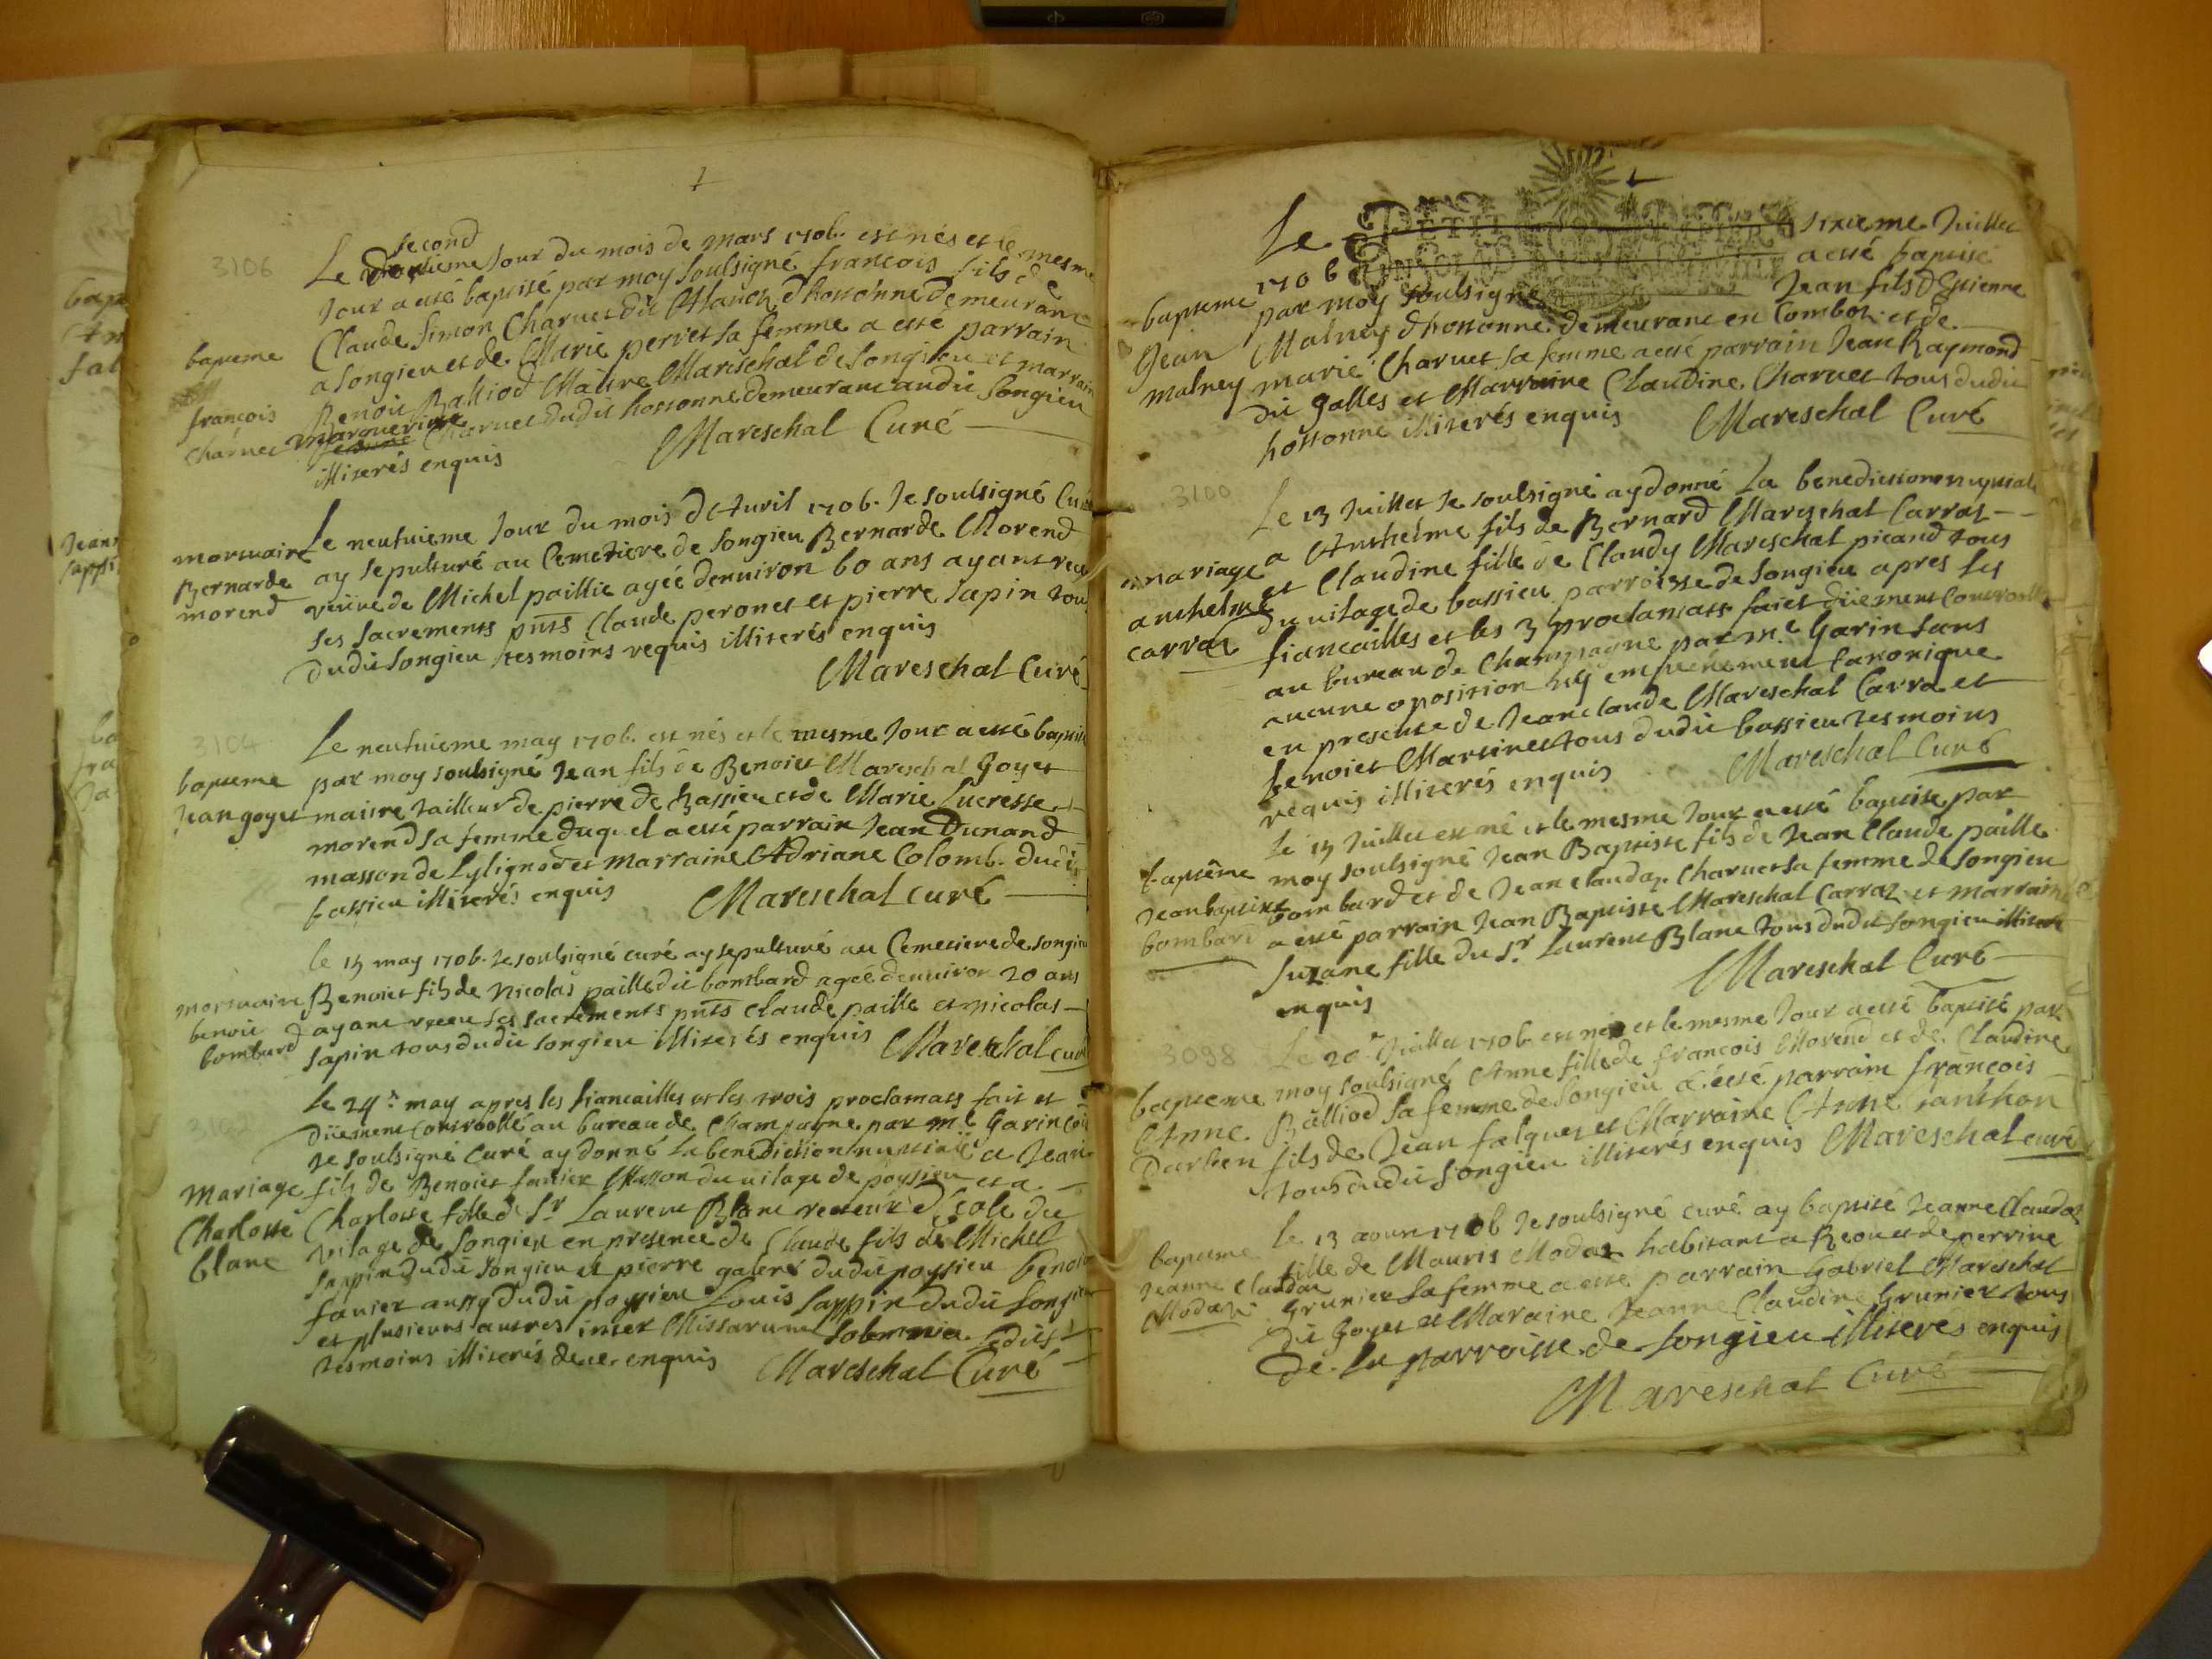 3106
second
Le jour du mois de mars 1706. est nés et le mesme
Jour a esté baptisé par moy soulsigné francois fils de
Claude Simon Charuet dit d'hotonne demeurant
bapteme
a songieu et de Marie perret sa femme a esté parrain
Benoit Balliod Maitre Mareschal de Songieu et marraine
francois
Charuet
marguerite Charuet dudit hotonne demeurant audit Songieu
illiterés enquis Mareschal Curé
Le neufuieme Jour du mois d'Auril 1706. Je soulsigné Curé
mortuaire
Bernarde
morend
ay sepulturé au Cemetiere de Songieu Bernarde Morend
veüve de Michel paillie agée denuiron 60 ans ayant receu
ses sacrements pnts Claude peronet et pierre sapin tous
dudit songieu tesmoins requis illiterés enquis
Mareschal Curé
3104
Le neufuieme may 1706. est nés et le mesme Jour a esté baptisé
bapteme
Jean goyet
par moy soulsigné Jean fils de Benoiet Mareschal Goyet
maitre tailleur de pierre de Bassieu et de Marie Lucresse
morend sa femme duquel a esté parrain Jean Dunand
masson de Lylignod et marraine Adriane Colomb. dudit
bassieu illiterés enquis Mareschal curé
le 15 may 1706. Je soulsigné curé ay sepulturé au Cemetiere de songieu
mortuaire
benoit
bombard
Benoiet fils de Nicolas paille dit bombard agée denuiron 20 ans
ayant receu ses sacrements pnts Claude paille et nicolas
sapin tous dudit songieu illiterés enquis Mareschal curé
Le 24.e may apres les fiancailles et les trois proclamats fait et
düement controollé au bureau de Champagne par m.e Garin
Je soulsigné Curé ay donné la benediction nuptialle a Jean
mariage
Charlotte
blanc
fils de Benoiet fauier Masson du uilage de poysieu et a
Charlotte fille de Sr Laurent Blanc d'Escole du
vilage de Songieu en presence de Claude fils de Michel
sappin dudit songieu et pierre galere dudit poysieu benoiet
fauier aussy dudit poysieu Louis sappin dudit songieu
et plusieurs autres inter Missarum solemnia. sedits
tesmoins illiterés de ce enquis Mareschal Curé
Le sixieme Juillet
1706 a esté baptisé
bapteme
Jean
malney
par moy soulsigné Jean fils d'Estienne
Malney d'hotonne demeurant en Comboz et de
marie Charuet sa femme a esté parrain Jean Raymond
dit Galles et Marraine Claudine Charuet tous dudit
hottonne illiterés enquis Mareschal Curé
3100
Le 13 Juillet Je soulsigné ay donné la benediction nuptiale
mariage
anthelme
carraz
a Anthelme fils de Bernard Mareschal Carraz
et Claudine fille de Claudy Mareschal picand tous
du uilage de bassieu parroisse de songieu apres les
fiancailles et les 3 proclamats faiet düement Controollé
au bureau de Champagne par m.e Garin sans
aucune oposition ny empechement Canonique
en presence de Jeanclaude Mareschal Carra et
benoiet Martinet tous dudit bassieu tesmoins
requis illiterés enquis Mareschal Curé
Le 15 Juillet est né et le mesme Jour a esté baptise par
baptême
Jeanbaptiste
bombard
moy soulsigné Jean Baptiste fils de Jean Claude paille
bombard et de Jeanclaudaz Charuet sa femme de Songieu
a esté parrain Jean Baptiste Mareschal Carraz et marraine
Suzane fille du Sr Laurent Blanc tous dudit songieu illiterés
enquis Mareschal Curé
3098
Le 20.e Juillet 1706 est née et le mesme Jour a esté baptisé par
bapteme
Anne
moy soulsigné Anne fille de francois Morend et de Claudine
Balliod sa femme de Songieu a esté parrain francois
fils de Jean falquet et Marraine Anne
tous dudit Songieu illiterés enquis Mareschal curé
le 13 aoust 1706 Je soulsigné curé ay baptisé Jeanne Claudaz
bapteme
Jeanne Claudaz
Modaz
fille de Mauris Modaz habitant a et de perrine
Grunier sa femme a esté parrain Gabriel Mareschal
dit Goyet et Maraine Jeanne Claudine Grunier tous
de la parroisse de songieu illiteres enquis
Mareschal Curé